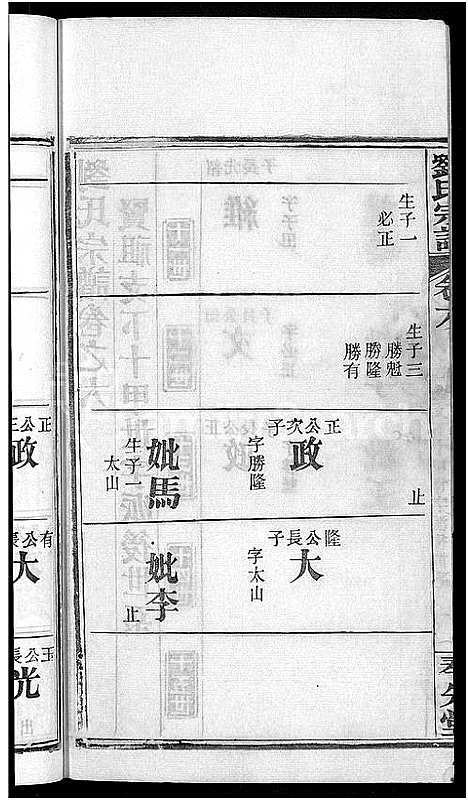 劉氏宗譜
卷之六
生子一
必正
生子三
勝魁
勝隆
勝有
止
正公次子
政
字勝隆
妣馬
生子一
太山
隆公長子
大
字太山
妣李
止
正公三
政
有公長
大
玉公長
光
出